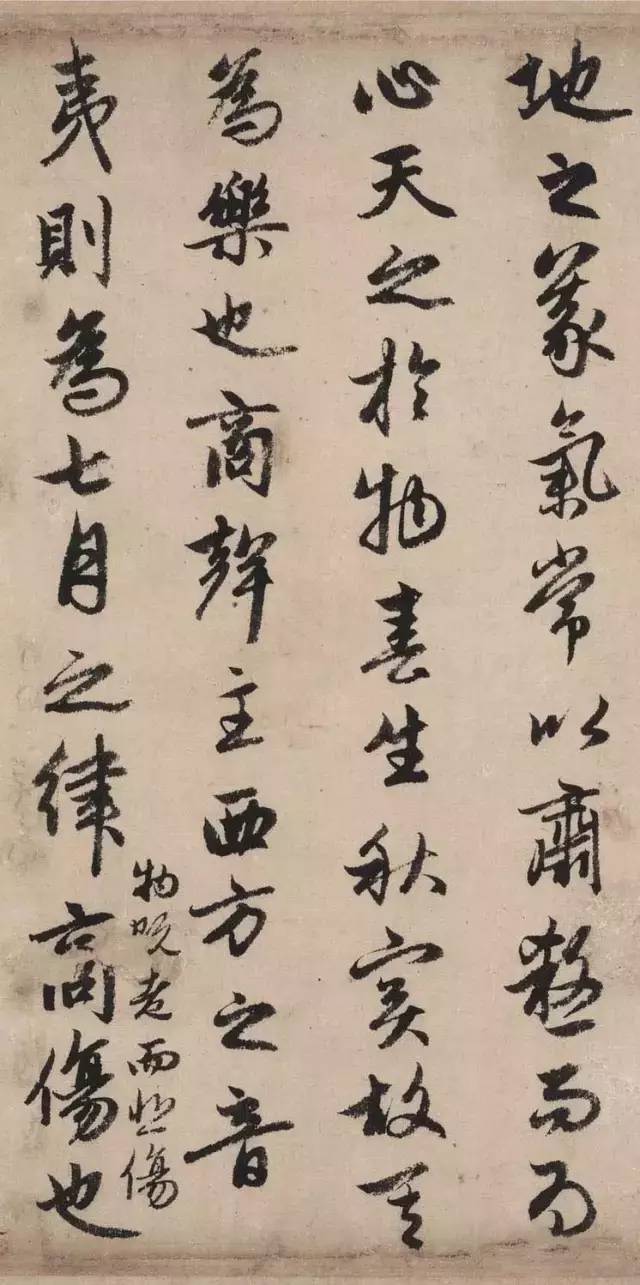 地之義氣常以肅殺而爲
心天之於物春生秋實故其
為樂也商聲主西方之音
物既老而悲傷
夷則為七月之律商傷也